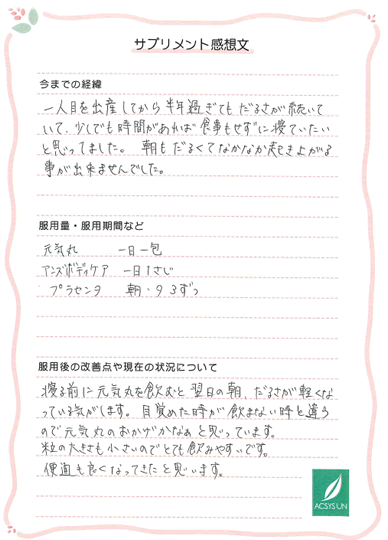 サプリメント感想文
今までの経緯
一人目を出産してから半年過ぎてもだるさが続いて
いて、少しでも時間があれば食事もせずに寝ていたい
と思ってました。朝もだるくてなかなか起き上がる
事が出来ませんでした。
服用量・服用期間など
元気丸 一日一包
アンズボディケア 一日1さじ
プラセンタ 朝・夕3ずつ
服用後の改善点や現在の状況について
寝る前に元気丸を飲むと翌日の朝、だるさが軽くな
っている気がします。目覚めた時が飲まない時と違う
ので元気丸のおかげかなぁと思っています。
粒の大きさも小さいのでとても飲みやすいです。
便通も良くなってきたと思います。
ACSYSUN